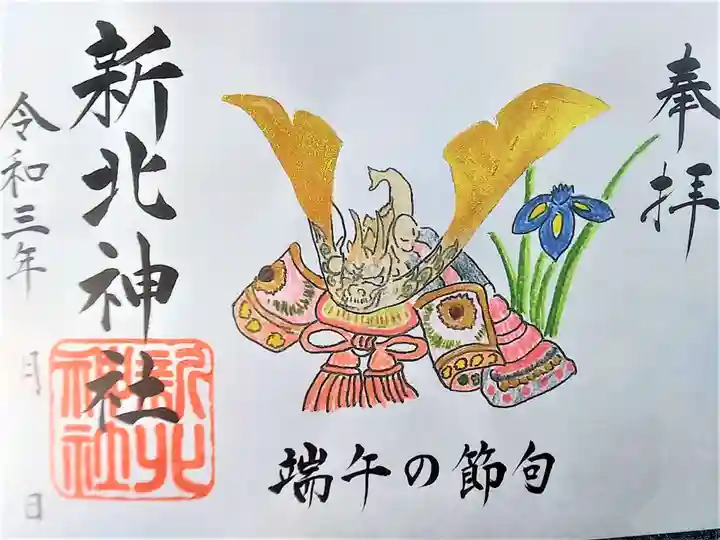 奉拝
端午の節句
新北神社
新北神社
令和三年 月 日